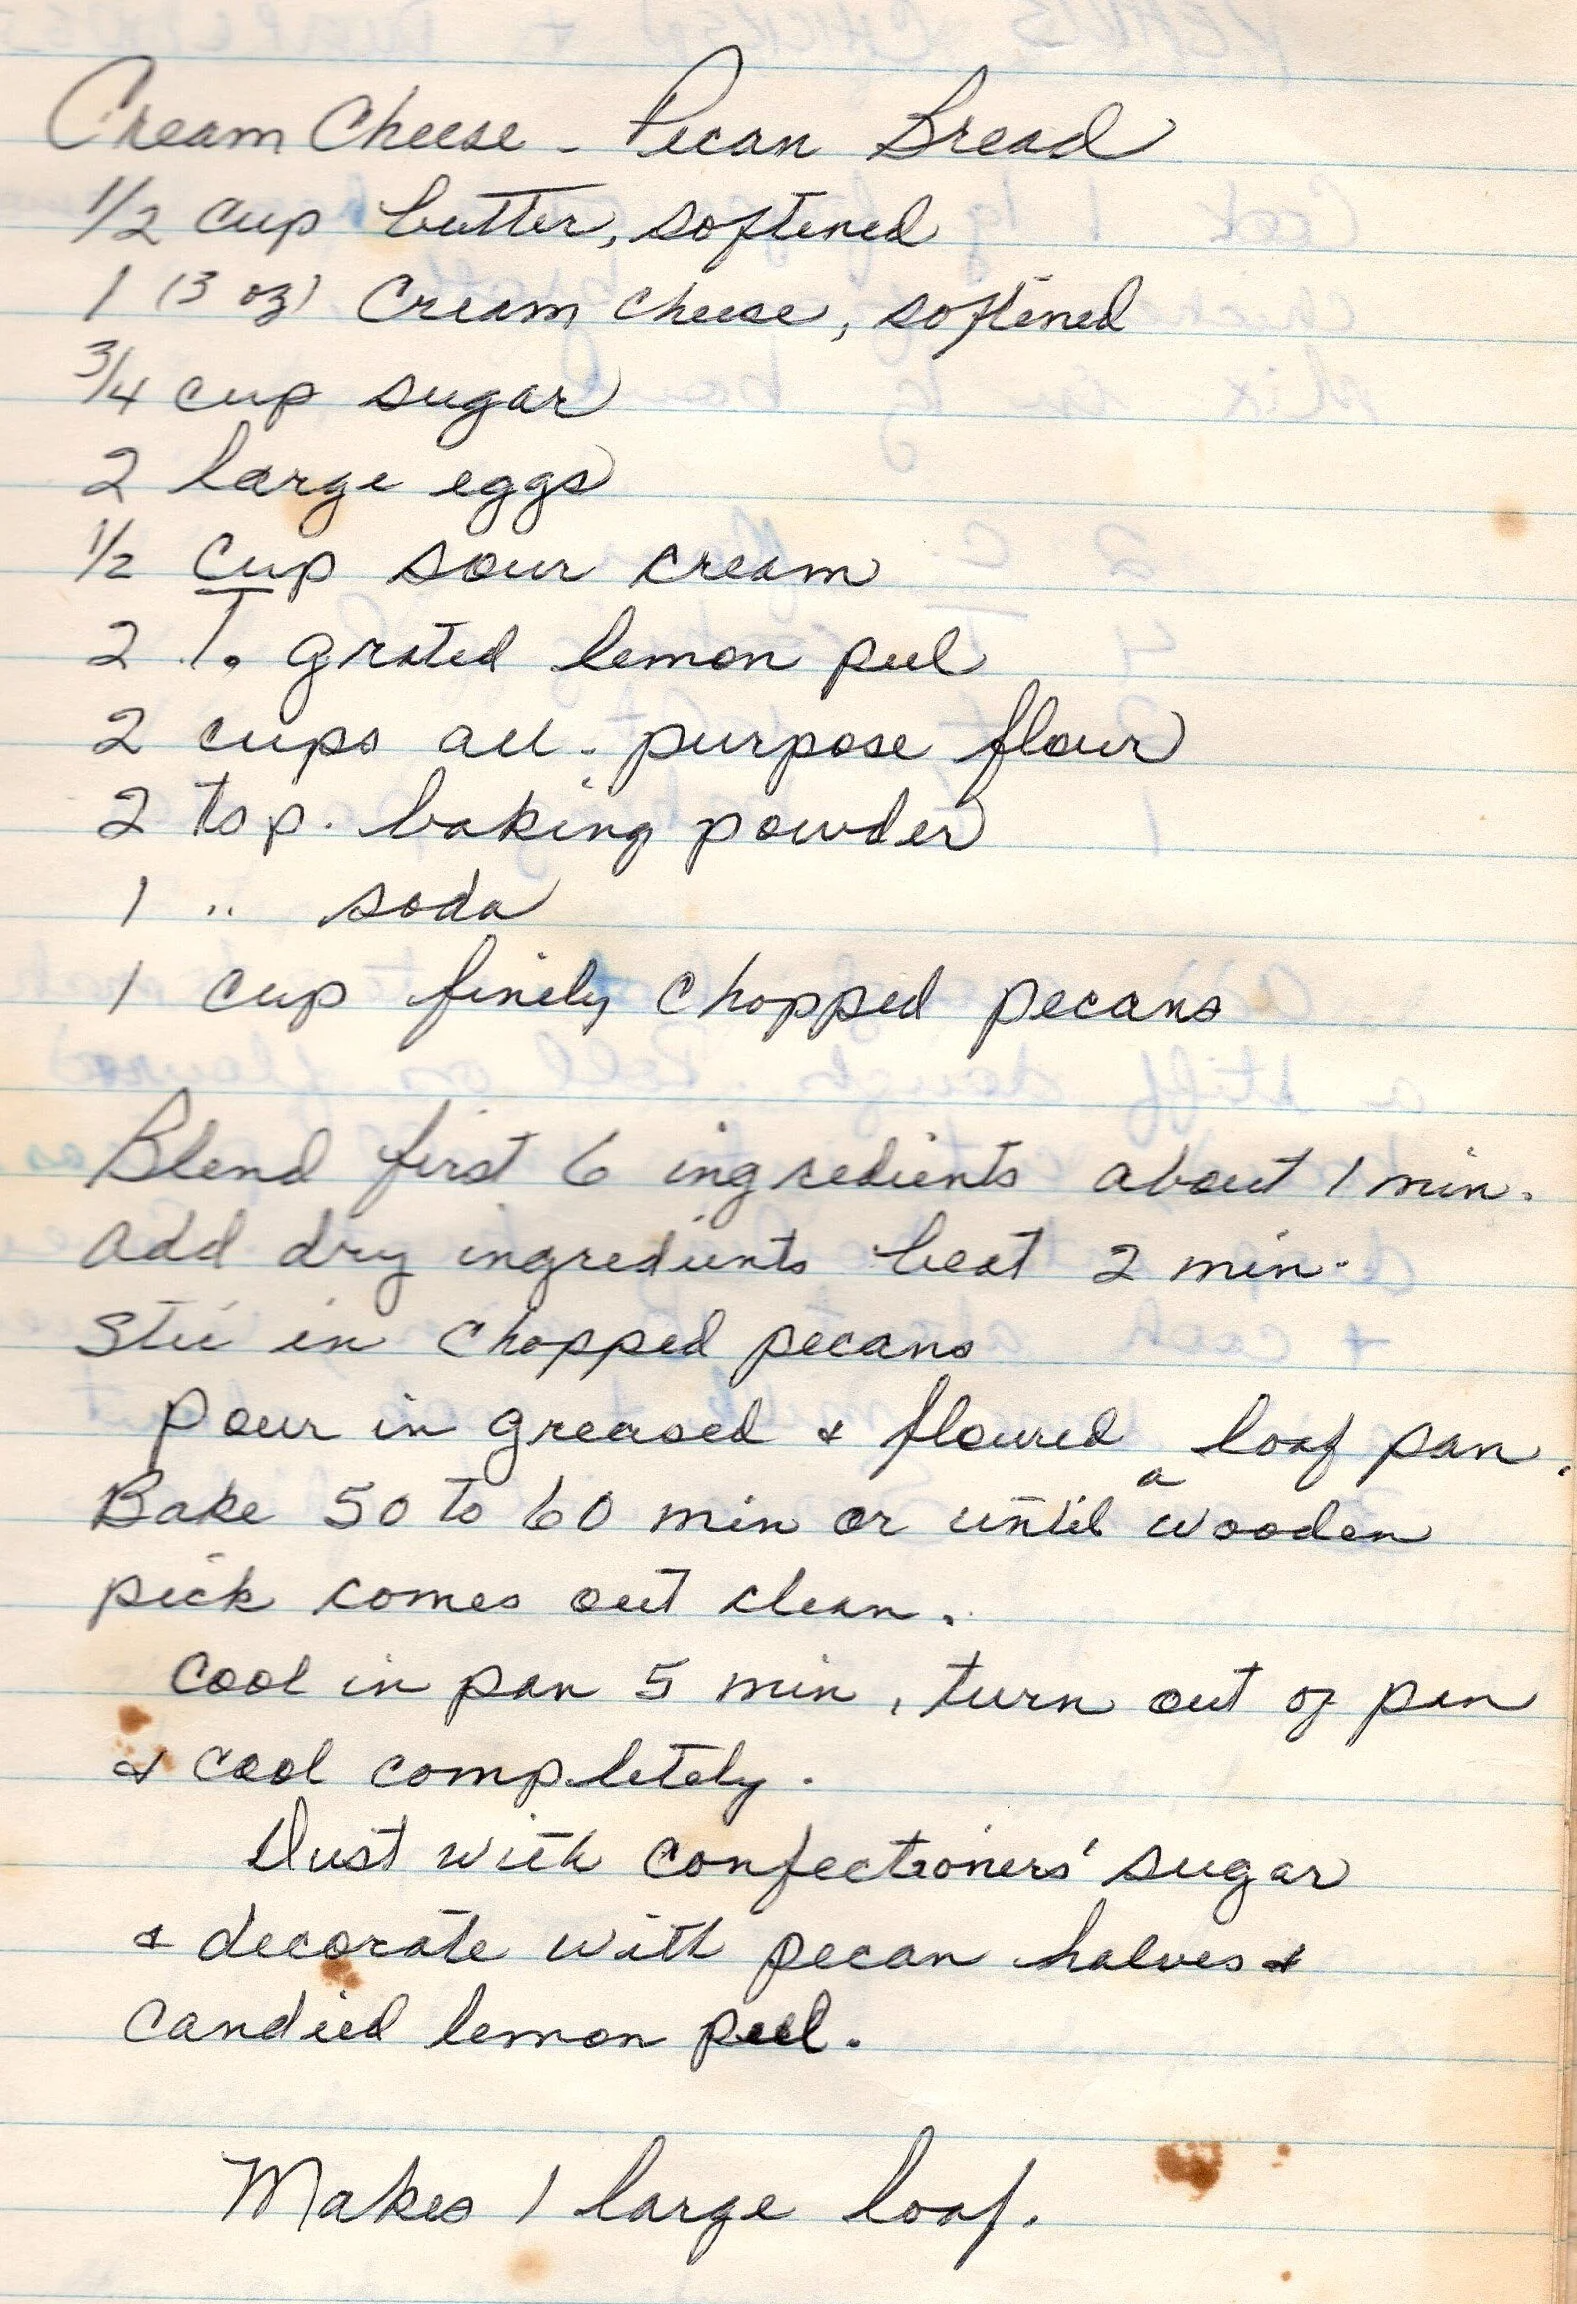 Cream Cheese - Pecan Bread
1/2 cup butter, softened
1 (3 oz) Cream Cheese, softened
3/4 cup sugar
2 large eggs
1/2 cup sour cream
2 T. grated lemon peel
2 cups all-purpose flour
2 tsp. baking powder
1 " soda
1 cup finely chopped pecans
Blend first 6 ingredients about 1 min.
Add dry ingredients beat 2 min.
Stir in chopped pecans
Pour in greased & floured loaf pan.
Bake 50 to 60 min or until a wooden
pick comes out clean.
Cool in pan 5 min, turn out of pan
& cool completely.
Dust with confectioners' sugar
& decorate with pecan halves &
candied lemon peel.
Makes 1 large loaf.